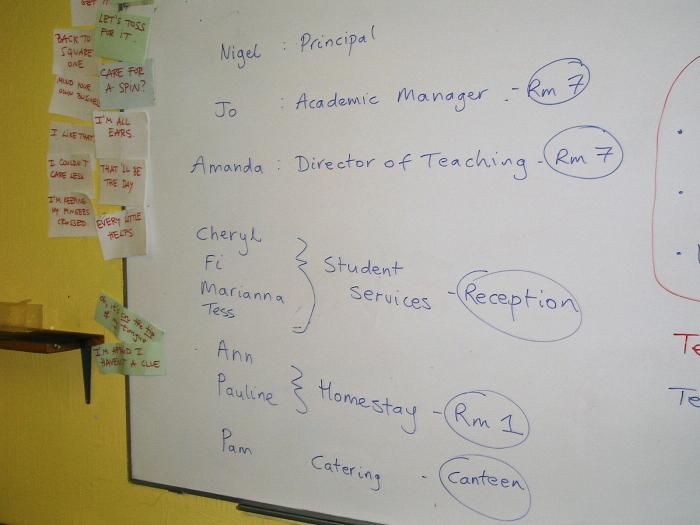 GET IT
LET'S TOSS
FOR IT.
BACK TO
SQUARE
ONE
CARE FOR
A SPIN?
MIND YOUR
OWN BUSINESS
I'M ALL
EARS.
I LIKE THAT
I COULDN'T
CARE LESS
THAT'LL BE
THE DAY
I'M KEEPING
MY FINGERS
CROSSED.
EVERY LITTLE
HELPS
Oh, it's on the tip
of my tongue
I'M AFRAID I
HAVEN'T A CLUE
Nigel : Principal
Jo : Academic Manager - Rm 7
Amanda : Director of Teaching - Rm 7
Cheryl
Fi
Marianna
Tess
Student
Services - Reception
Ann
Pauline
Homestay - Rm 1
Pam Catering - Canteen
Te
Te